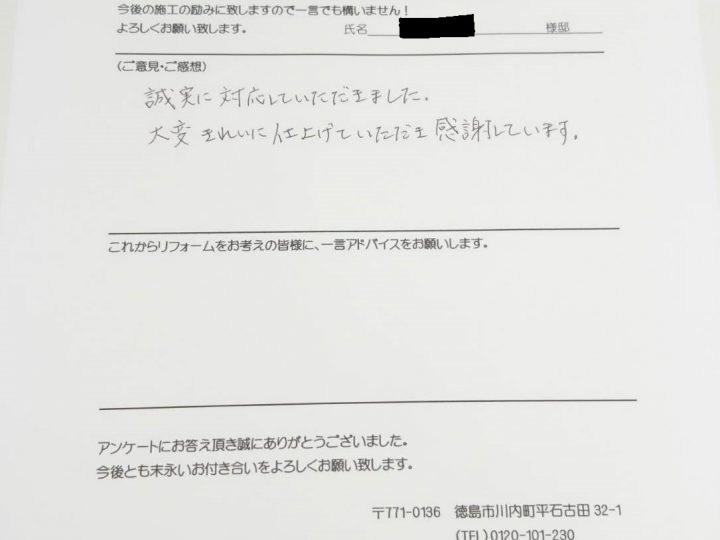 今後の施工の励みに致しますので一言でも構いません!
よろしくお願い致します。 氏名 様邸
(ご意見・ご感想)
誠実に対応していただきました。
大変きれいに仕上げていただき感謝しています。
これからリフォームをお考えの皆様に、一言アドバイスをお願いします。
アンケートにお答え頂き誠にありがとうございました。
今後とも末永いお付き合いをよろしくお願い致します。
〒771-0136 徳島市川内町平石古田 32-1
(TEL)0120-101-230